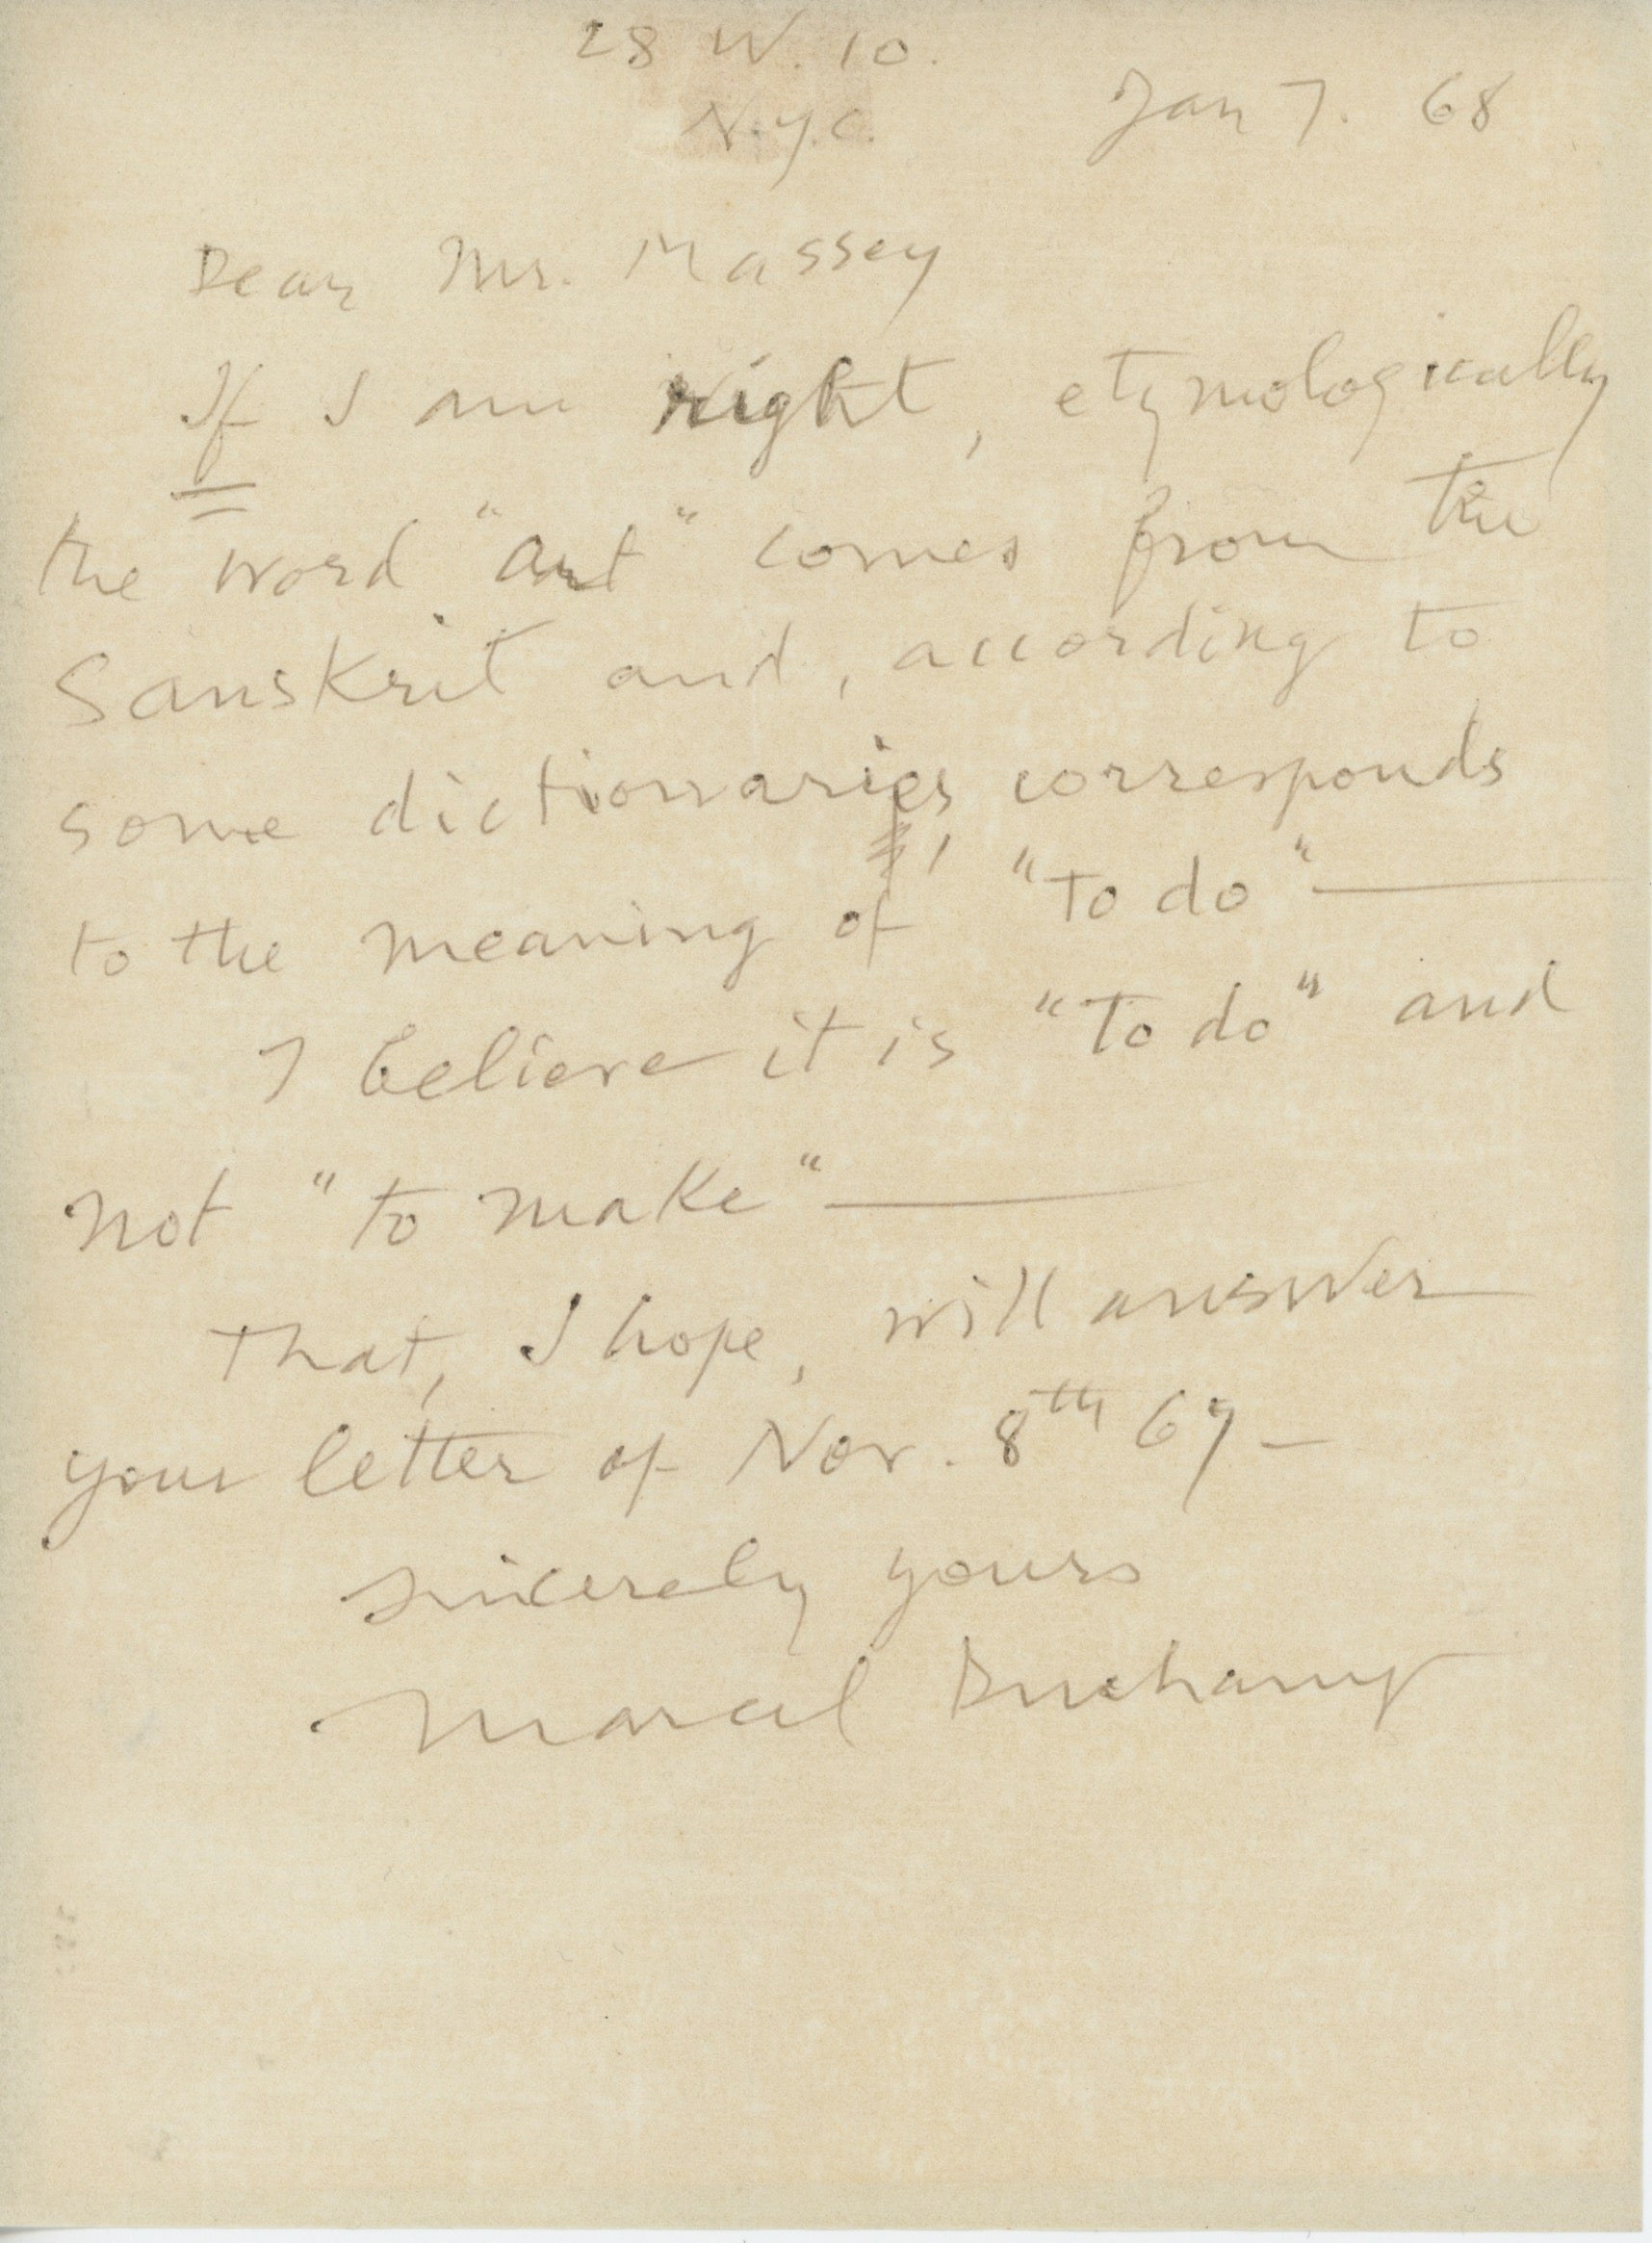 28 W. 10.
N.Y.C.
Jan 7. 68
Dear Mr. Massey
If I am right, etymologically
the word "art" comes from the
Sanskrit and, according to
some dictionaries, corresponds
to the meaning of "to do" —
I believe it is "to do" and
not "to make" —
That, I hope, will answer
your letter of Nov. 8th 67 —
Sincerely yours
Marcel Duchamp